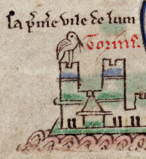 la p͛mere vile de lum
Torins.